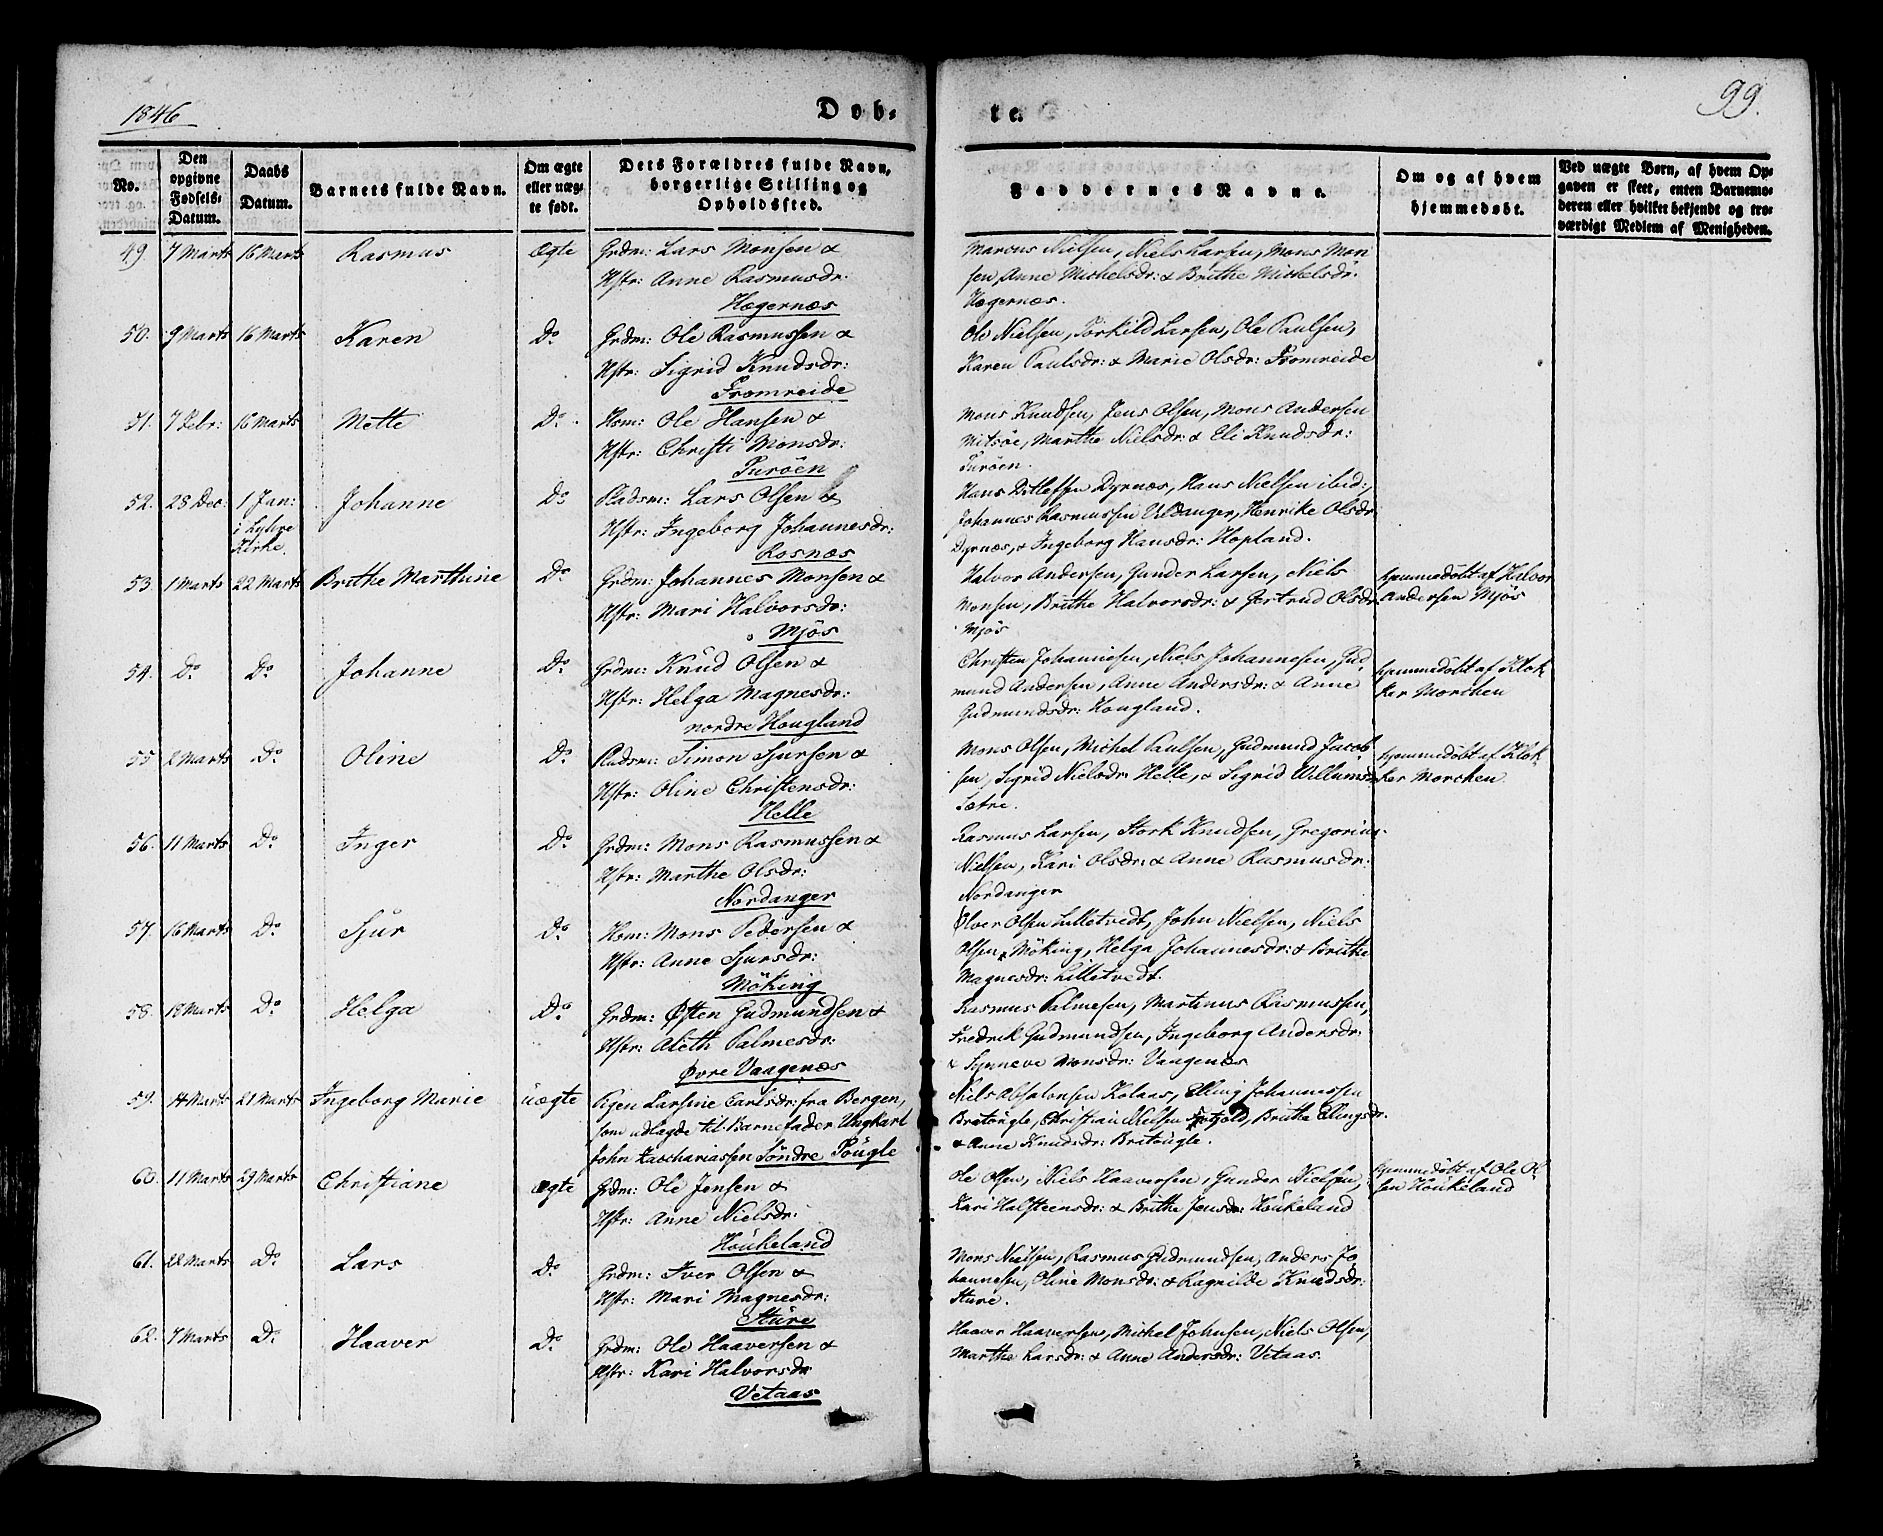 1846
Døb-
te.
99.
No.
Den opgivne Fødsels-Datum.
Daabs Datum.
Barnets fulde Navn.
Om ægte eller uæg-te født.
Dets Forældres fulde Navn, borgerlige Stilling og Opholdssted.
Faddernes Navne.
Om og af hvem hjemmedøbt.
Ved uægte Børn, af hvem Op-gaven er skeet, enten Barnemo-deren eller hvilket bekjendt og tro-værdigt Medlem af Menigheden.
49. 7 Marts 16 Marts Rasmus Ægte Grdm: Lars Monsen &
Hstr: Anne Rasmusdr:
Hægernæs
Marcus Nielsen, Niels Larsen, Mons Mon
sen, Anne Michelsdr: & Brithe Michelsdr:
Hægernæs.
50. 9 Marts 16 Marts Karen Do Grdm: Ole Rasmussen &
Hstr: Sigrid Knudsdr:
Fromreide
Ole Nielsen, Torkild Larsen, Ole Paulsen,
Karen Paulsdr: & Marie Olsdr: Fromreide
51. 7 Febr: 16 Marts Mette Do Hsm: Ole Hansen &
Hstr: Christi Monsdr:
Turöen
Mons Knudsen, Jens Olsen, Mons Andersen
Mitsöe, Marthe Nielsdr: & Eli Knudsdr:
Turöen.
52. 28 Dec: 1 Jan: Johanne Do Pladsm: Lars Olsen &
i Lyhre
Kirke.
Hstr: Ingeborg Johannesdr:
Rosnæs
Hans Ditlefsen Dyrnæs, Hans Nielsen ibid:,
Johannes Rasmussen Uldanger, Henrike Olsdr:
Dyrnæs, & Ingeborg Hansdr: Hopland.
53. 1 Marts 22 Marts Brithe Marthine Do Grdm: Johannes Monsen &
Hstr: Mari Halvorsdr:
Mjös
Halvor Andersen, Gunder Larsen, Niels
Monsen, Brithe Halvorsdr: & Gertrud Olsdr:
Mjös
hjemmedöbt af Halvor
Andersen Mjös
54. Do Do Johanne Do Grdm: Knud Olsen &
Hstr: Helga Magnesdr:
nordre Hougland
Christen Johannesen, Niels Johannesen, Gud-
mund Andersen, Anne Andersdr: & Anne
Gudmundsdr: Hougland.
hjemmedöbt af Klok-
ker Morchen
55. 2 Marts Do Oline Do Pladsm: Simon Sjursen &
Hstr: Oline Christensdr:
Helle
Mons Olsen, Michel Paulsen, Gudmund Jacob-
sen, Sigrid Nielsdr: Helle, & Sigrid Willumsdr:
Sætre.
hjemmedöbt af Klok-
ker Morchen
56. 11 Marts Do Inger Do Grdm: Mons Rasmussen &
Hstr: Marthe Olsdr:
Nordanger
Rasmus Larsen, Stork Knudsen, Gregorius
Nielsen, Kari Olsdr: & Anne Rasmusdr:
Nordanger
57. 16 Marts Do Sjur Do Hsm: Mons Pedersen &
Hstr: Anne Sjursdr:
Möking
Elver Olsen Lilletvedt, John Nielsen, Niels
Olsen Möking, Helga Johannesdr: & Brithe
Magnesdr: Lilletvedt.
58. 18 Marts Do Helga Do Grdm: Østen Gudmundsen &
Hstr: Aleth Palmesdr:
Øvre Vaagenæs
Rasmus Palmesen, Martinus Rasmussen,
Fredrik Gudmundsen, Ingeborg Andersdr:
& Synneve Monsdr: Vaagenæs
59. 14 Marts 21 Marts Ingeborg Marie üægte Pigen Larsine Carlsdr: fra Bergen,
som udlagde til Barnefader Ungkarl
John Zachariassen Söndre Töugle
Niels Absalonsen Kolaas, Elling Johannessen
Bratöugle, Christian Nielsen, Brithe Ellingsdr:
& Anne Knudsdr: Bratöugle.
60. 11 Marts 29 Marts Christiane ægte Grdm: Ole Jensen &
Hstr: Anne Nielsdr:
Höukeland
Ole Olsen, Niels Haaversen, Gunder Nielsen,
Kari Halsteensdr: & Brithe Jensdr: Höukeland
hjemmedöbt af Ole Ol-
sen Höukeland
61. 22 Marts Do Lars Do Grdm: Iver Olsen &
Hstr: Mari Magnesdr:
Stüre
Mons Nielsen, Rasmus Gudmundsen, Anders Jo
hannesen, Oline Monsdr: & Ragnilde Knudsdr:
Stüre.
62. 7 Marts Do Haaver Do Grdm: Ole Haaversen &
Hstr: Kari Halvorsdr
Vetaas
Haaver Haaversen, Michel Johnsen, Niels Olsen,
Marthe Larsdr: & Anne Andersdr: Vetaas.